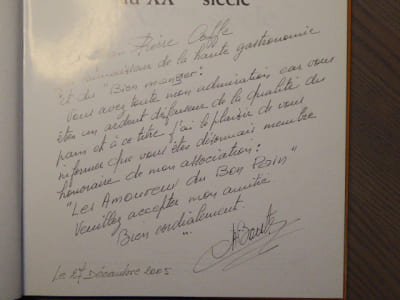 du XXe siècle
Jean Pierre Coffe
Connaisseur de la haute gastronomie
et du "Bien manger".
Vous avez toute mon admiration car vous
êtes un ardent défenseur de la qualité du
pain et à ce titre j'ai le plaisir de vous
informer que vous êtes désormais membre
honoraire de mon association:
"Les Amoureux du Bon Pain"
Veuillez accepter mon amitié
Bien cordialement
Le 27 Décembre 2005